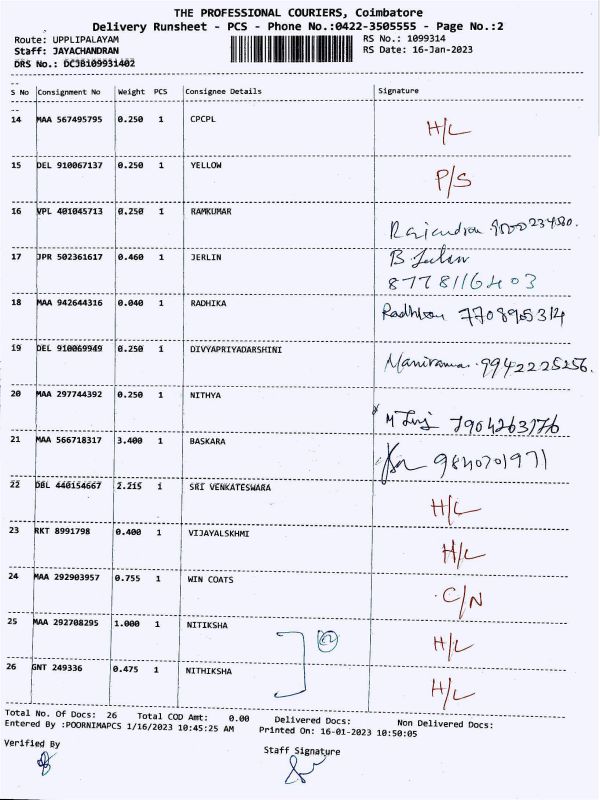 THE PROFESSIONAL COURIERS, Coimbatore
Delivery Runsheet - PCS - Phone No.:0422-3505555 - Page No.:2
Route: UPPLIPALAYAM RS No.: 1099314
Staff: JAYACHANDRAN RS Date: 16-Jan-2023
DRS No.: DCJB109931402
S No Consignment No Weight PCS Consignee Details Signature
14 MAA 567495795 0.250 1 CPCPL H/L
15 DEL 910067137 0.250 1 YELLOW P/S
16 VPL 401045713 0.250 1 RAMKUMAR
17 JPR 502361617 0.460 1 JERLIN B.
8778116403
18 MAA 942644316 0.040 1 RADHIKA 7708905314
19 DEL 910069949 0.250 1 DIVYAPRIYADARSHINI 9942225256.
20 MAA 297744392 0.250 1 NITHYA 7904263176
21 MAA 566718317 3.400 1 BASKARA 9840701971
22 DBL 440154667 2.215 1 SRI VENKATESWARA H/L
23 RKT 8991798 0.400 1 VIJAYALSKHMI H/L
24 MAA 292903957 0.755 1 WIN COATS C/N
25 MAA 292708295 1.000 1 NITIKSHA H/L
26 GNT 249336 0.475 1 NITHIKSHA H/L
Total No. Of Docs: 26 Total COD Amt: 0.00 Delivered Docs: Non Delivered Docs:
Entered By :POORNIMAPCS 1/16/2023 10:45:25 AM Printed On: 16-01-2023 10:50:05
Verified By Staff Signature